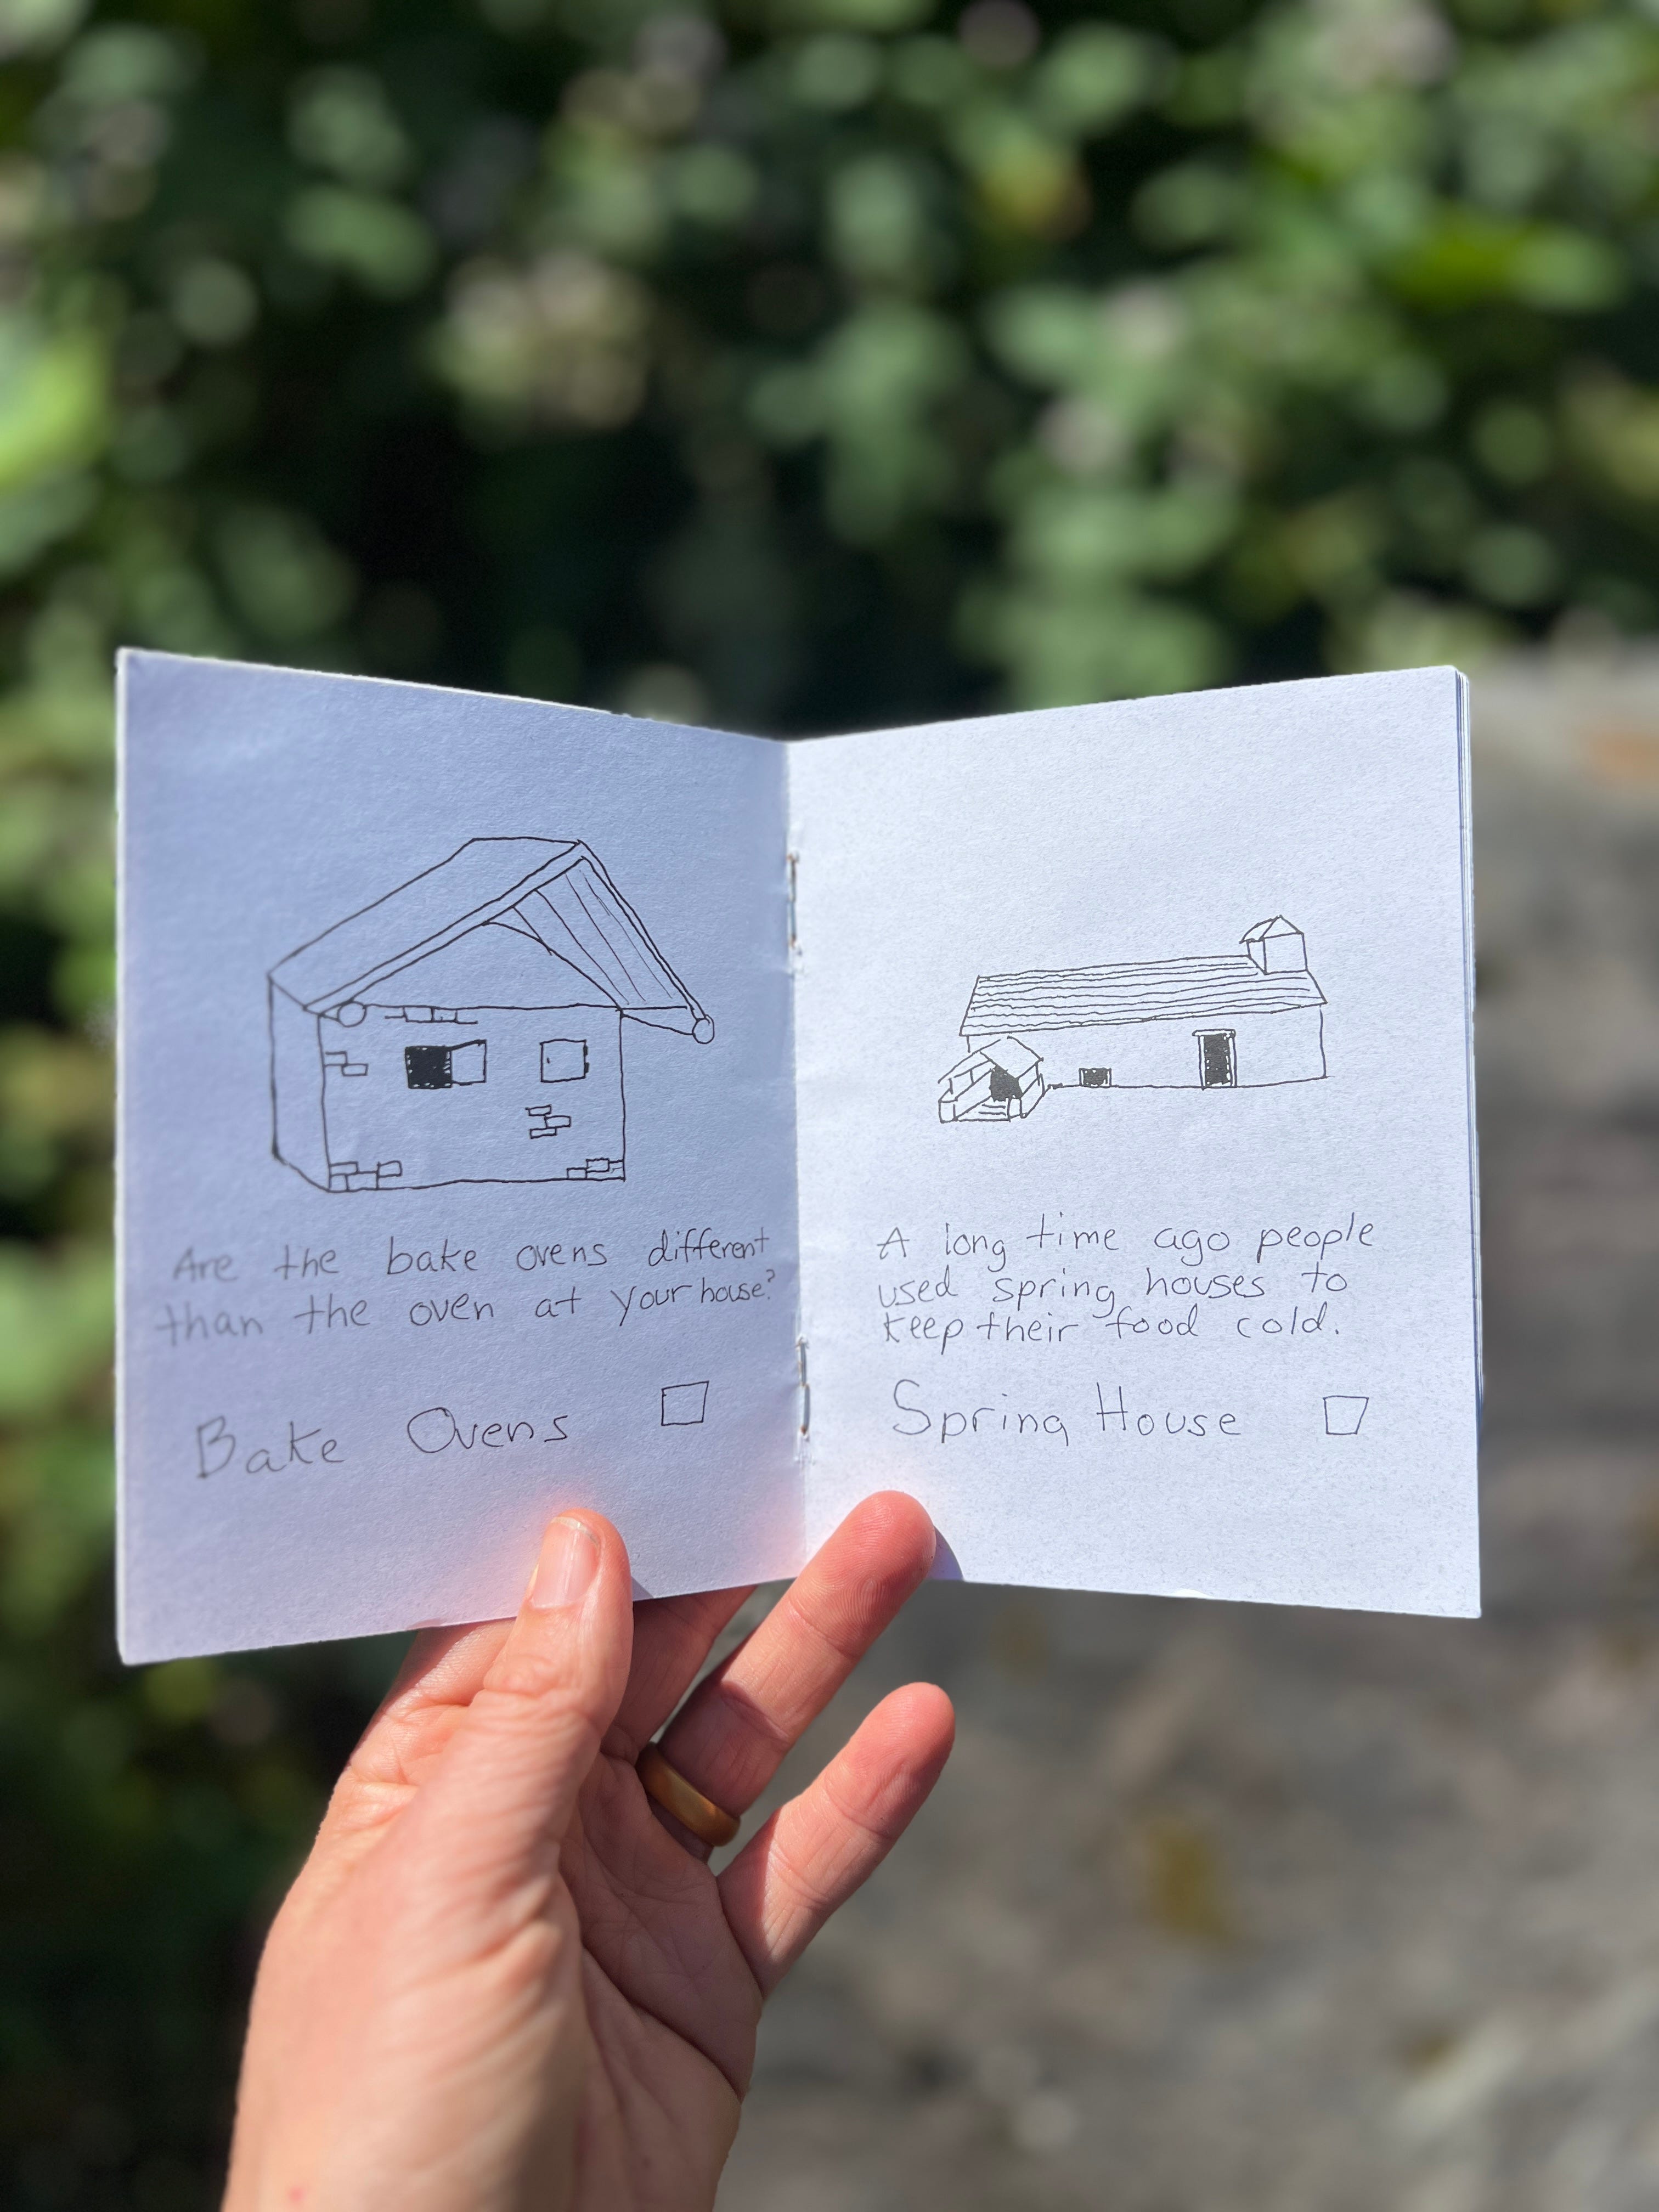 Are the bake ovens different
than the oven at your house?
Bake Ovens
A long time ago people
used spring houses to
keep their food cold.
Spring House